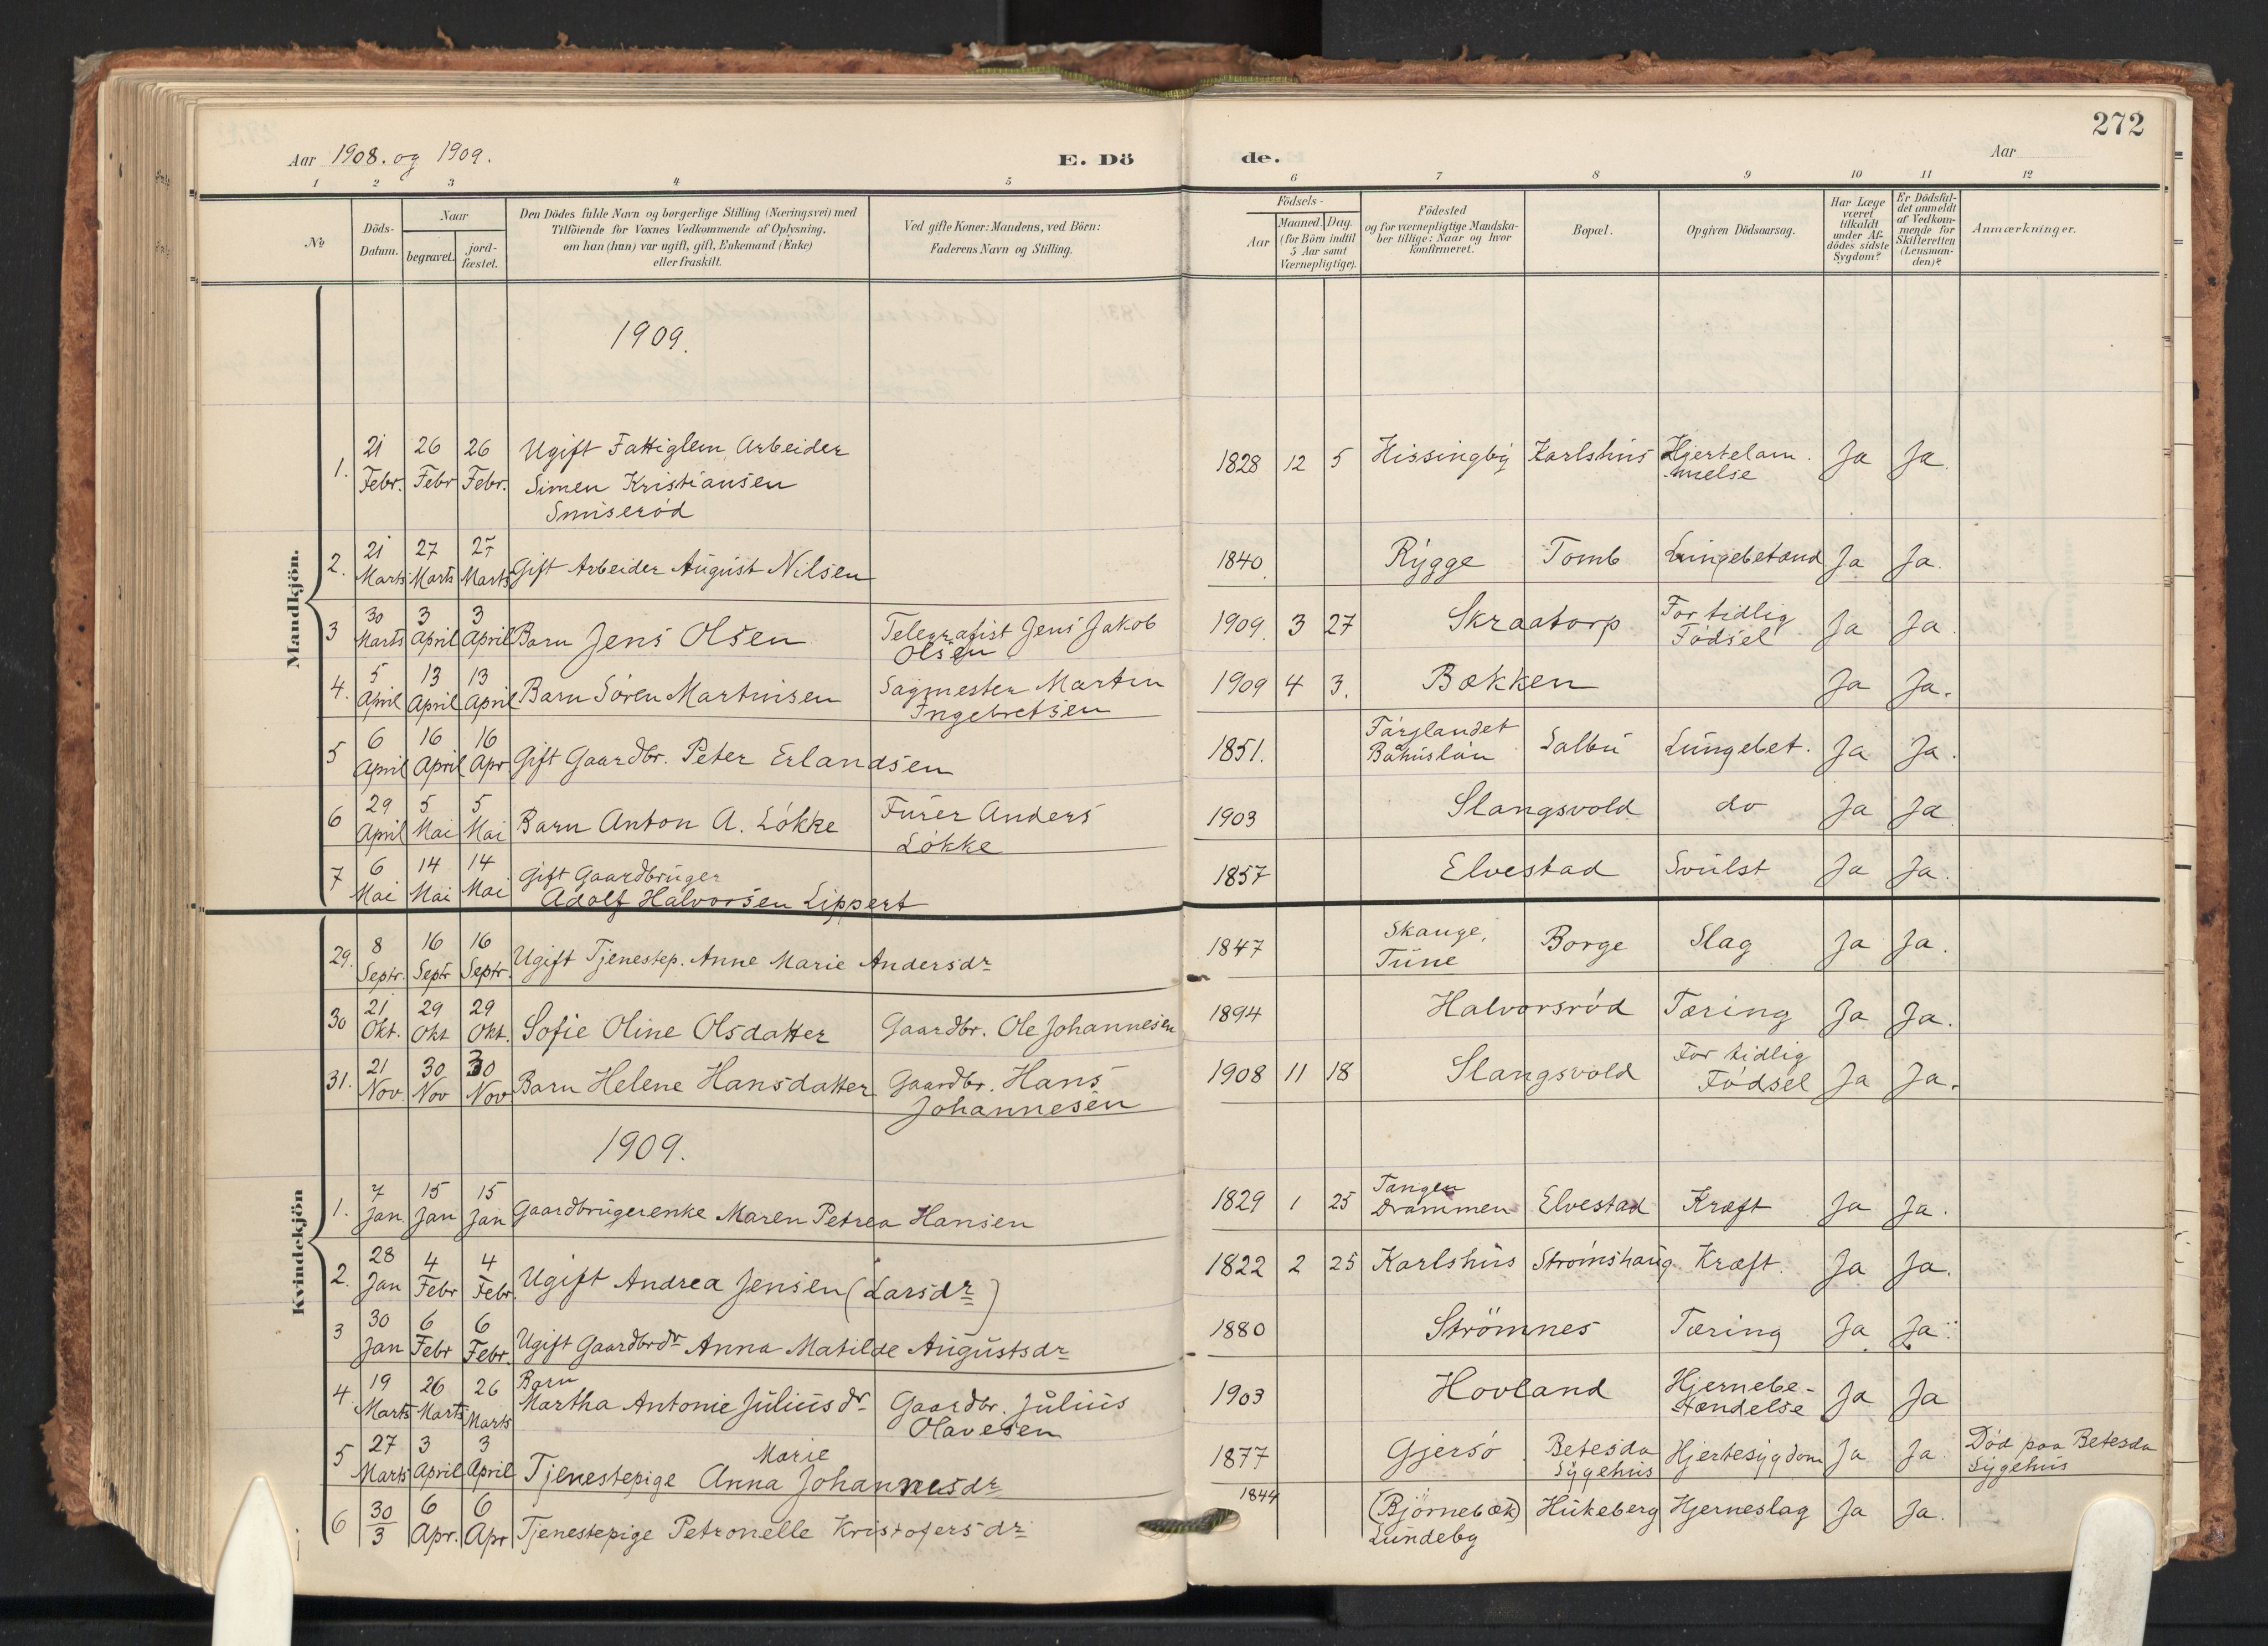 272
Aar 1908. og 1909.
E. Dö
de.
Aar
1 2 3 4 5 6 7 8 9 10 11 12
No
Döds-
Datum.
Naar
begravet.
jord-
fæstet.
Den Dödes fulde Navn og borgerlige Stilling (Næringsvei) med
Tilföiende for Voxnes Vedkommende af Oplysning,
om han (hun) var ugift, gift, Enkemand (Enke)
eller fraskilt.
Ved gifte Koner: Mandens, ved Börn:
Faderens Navn og Stilling.
Födsels-
Aar
Maaned. Dag.
(for Börn indtil
5 Aar samt
Værnepligtige).
Födested
og for værnepligtige Mandska-
ber tillige: Naar og hvor
konfirmeret.
Bopæl.
Opgiven Dödsaarsag.
Har Læge
været
tilkaldt
under Af-
dödes sidste
Sygdom?
Er Dödsfal-
det anmeldt
af Vedkom-
mende for
Skifteretten
(Lensman-
den)?
Anmærkninger.
Mandkjön.
1909.
1. 21 Febr. 26 Febr 26 Febr. Ugift Fattiglem Arbeider
Simen Kristiansen
Smiserød
1828 12 5 Hissingby Karlshus Hjertelam
melse Ja Ja
2. 21 Marts 27 Marts 27 Marts Gift Arbeider August Nilsen 1840 Rygge Tomb Lungebetænd Ja Ja.
3 30 Marts 3 April 3 April Barn Jens Olsen Telegrafist Jens Jakob
Olsen 1909. 3 27 Skraatorp For tidlig
Fødsel Ja Ja
4. 5 April 13 April 13 April Barn Søren Martinsen Sagmester Martin
Ingebretsen 1909 4 3. Bækken Ja Ja.
5 6 April 16 April 16 Apr Gift Gaardbr. Peter Erlandsen 1851. Färglandet
Båhuslän Salbu Lungebet. Ja Ja.
6 29 April 5 Mai 5 Mai Barn Anton A. Løkke Furer Anders
Løkke 1903 Slangsvold do Ja Ja
7 6 Mai 14 Mai 14 Mai Gift Gaardbruger
Adolf Halvorsen Lippert 1857 Elvestad Svulst Ja Ja.
Kvindekjön
29. 8 Septr. 16 Septr 16 Septr. Ugift Tjenestep. Anne Marie Andersdr 1847 Skauge,
Tune Borge Slag Ja Ja.
30 21 Okt. 29 Okt 29 Okt. Sofie Oline Olsdatter Gaardbr. Ole Johannesen 1894 Halvorsrød Tæring Ja Ja.
31. 21 Nov. 30 Nov 30 Nov Barn Helene Hansdatter Gaardbr. Hans
Johannesen 1908 11 18 Slangsvold For tidlig
Fødsel Ja Ja.
1909.
1. 7 Jan. 15 Jan 15 Jan Gaardbrugerenke Maren Petrea Hansen 1829 1 25 Tangen
Drammen Elvestad Kræft Ja Ja.
2. 28 Jan 4 Febr 4 Febr. Ugift Andrea Jensen (Larsdr) 1822 2 25 Karlshus Strømshaug Kræft. Ja Ja.
3 30 Jan 6 Febr 6 Febr. Ugift Gaardbrdr Anna Matilde Augustsdr 1880 Strömnes Tæring Ja Ja.
4. 19 Marts 26 Marts 26 Marts Barn
Martha Antonie Juliusdr Gaardbr. Julius
Olavesen 1903 Hovland Hjernebe-
tændelse Ja Ja
5 27 Marts 3 April 3 April Tjenestepige Anna Marie Johannesdr 1877 Gjersø Betesda
Sygehus Hjertesygdom Ja Ja. Død paa Betesda
Sygehus
6 30/3 6 Apr. 6 Apr Tjenestepige Petronelle Kristofersdr 1844 (Bjørnebæk)
Lundeby Hukeberg Hjerneslag Ja Ja.